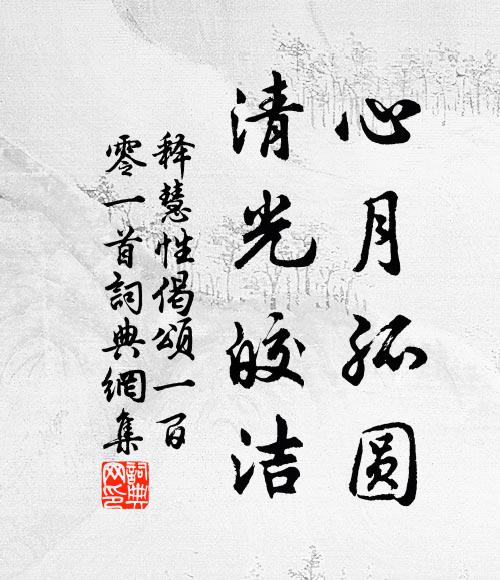 心月孤圆
清光皎洁
释慧性偈頌一百
零一首詞典網集
詞典
网印